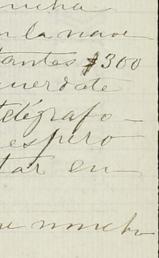 ucha
n la nave
tantos $300
uerdate
telégrafo -
espero
tar en
ue mucho